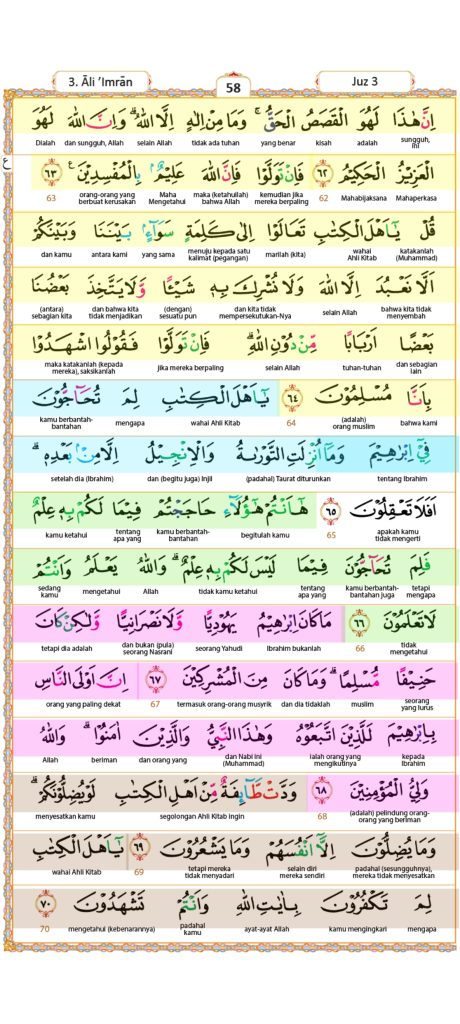 3. Āli 'Imrān
58
Juz 3
ع
اِنَّ هٰذَا لَهُوَ الْقَصَصُ الْحَقُّ ۚ وَمَا مِنْ اِلٰهٍ اِلَّا اللّٰهُ ۗ وَاِنَّ اللّٰهَ لَهُوَ
sungguh, ini adalah kisah yang benar tidak ada tuhan selain Allah dan sungguh, Allah Dialah
الْعَزِيْزُ الْحَكِيْمُ ٦٢ فَاِنْ تَوَلَّوْا فَاِنَّ اللّٰهَ عَلِيْمٌۢ بِالْمُفْسِدِيْنَ ࣖ ٦٣
Mahaperkasa Mahabijaksana 62 kemudian jika mereka berpaling maka (ketahuilah) bahwa Allah Maha Mengetahui orang-orang yang berbuat kerusakan 63
قُلْ يٰٓاَهْلَ الْكِتٰبِ تَعَالَوْا اِلٰى كَلِمَةٍ سَوَاۤءٍۢ بَيْنَنَا وَبَيْنَكُمْ
katakanlah (Muhammad) wahai Ahli Kitab marilah (kita) menuju kepada satu kalimat (pegangan) yang sama antara kami dan kamu
اَلَّا نَعْبُدَ اِلَّا اللّٰهَ وَلَا نُشْرِكَ بِهٖ شَيْـًٔا وَّلَا يَتَّخِذَ بَعْضُنَا
bahwa kita tidak menyembah selain Allah dan kita tidak mempersekutukan-Nya (dengan) sesuatu pun dan bahwa kita tidak menjadikan (antara) sebagian kita
بَعْضًا اَرْبَابًا مِّنْ دُوْنِ اللّٰهِ ۗ فَاِنْ تَوَلَّوْا فَقُوْلُوا اشْهَدُوْا
dan sebagian lain tuhan-tuhan selain Allah jika mereka berpaling maka katakanlah (kepada mereka), saksikanlah
بِاَنَّا مُسْلِمُوْنَ ٦٤ يٰٓاَهْلَ الْكِتٰبِ لِمَ تُحَاۤجُّوْنَ
bahwa kami (adalah) orang muslim 64 wahai Ahli Kitab mengapa kamu berbantah-bantahan
فِيْٓ اِبْرٰهِيْمَ وَمَآ اُنْزِلَتِ التَّوْرٰىةُ وَالْاِنْجِيْلُ اِلَّا مِنْۢ بَعْدِهٖ ۗ
tentang Ibrahim (padahal) Taurat diturunkan dan (begitu juga) Injil setelah dia (Ibrahim)
اَفَلَا تَعْقِلُوْنَ ٦٥ هٰٓاَنْتُمْ هٰٓؤُلَاۤءِ حَاجَجْتُمْ فِيْمَا لَكُمْ بِهٖ عِلْمٌ
apakah kamu tidak mengerti 65 begitulah kamu kamu berbantah-bantahan tentang apa yang kamu ketahui
فَلِمَ تُحَاۤجُّوْنَ فِيْمَا لَيْسَ لَكُمْ بِهٖ عِلْمٌ ۗ وَاللّٰهُ يَعْلَمُ وَاَنْتُمْ
tetapi mengapa kamu berbantah-bantahan juga tentang apa yang tidak kamu ketahui Allah mengetahui sedang kamu
لَا تَعْلَمُوْنَ ٦٦ مَاكَانَ اِبْرٰهِيْمُ يَهُوْدِيًّا وَّلَا نَصْرَانِيًّا وَّلٰكِنْ كَانَ
tidak mengetahui 66 Ibrahim bukanlah seorang Yahudi dan bukan (pula) seorang Nasrani tetapi dia adalah
حَنِيْفًا مُّسْلِمًاۗ وَمَا كَانَ مِنَ الْمُشْرِكِيْنَ ٦٧ اِنَّ اَوْلَى النَّاسِ
seorang yang lurus muslim dan dia tidaklah termasuk orang-orang musyrik 67 orang yang paling dekat
بِاِبْرٰهِيْمَ لَلَّذِيْنَ اتَّبَعُوْهُ وَهٰذَا النَّبِيُّ وَالَّذِيْنَ اٰمَنُوْا ۗ وَاللّٰهُ
kepada Ibrahim ialah orang yang mengikutinya dan Nabi ini (Muhammad) dan orang yang beriman Allah
وَلِيُّ الْمُؤْمِنِيْنَ ٦٨ وَدَّتْ طَّاۤىِٕفَةٌ مِّنْ اَهْلِ الْكِتٰبِ لَوْ يُضِلُّوْنَكُمْ ۗ
(adalah) pelindung orang-orang yang beriman 68 segolongan Ahli Kitab ingin menyesatkan kamu
وَمَا يُضِلُّوْنَ اِلَّآ اَنْفُسَهُمْ وَمَا يَشْعُرُوْنَ ٦٩ يٰٓاَهْلَ الْكِتٰبِ
padahal (sesungguhnya), mereka tidak menyesatkan selain diri mereka sendiri tetapi mereka tidak menyadari 69 wahai Ahli Kitab
لِمَ تَكْفُرُوْنَ بِاٰيٰتِ اللّٰهِ وَاَنْتُمْ تَشْهَدُوْنَ ٧٠
mengapa kamu mengingkari ayat-ayat Allah padahal kamu mengetahui (kebenarannya) 70